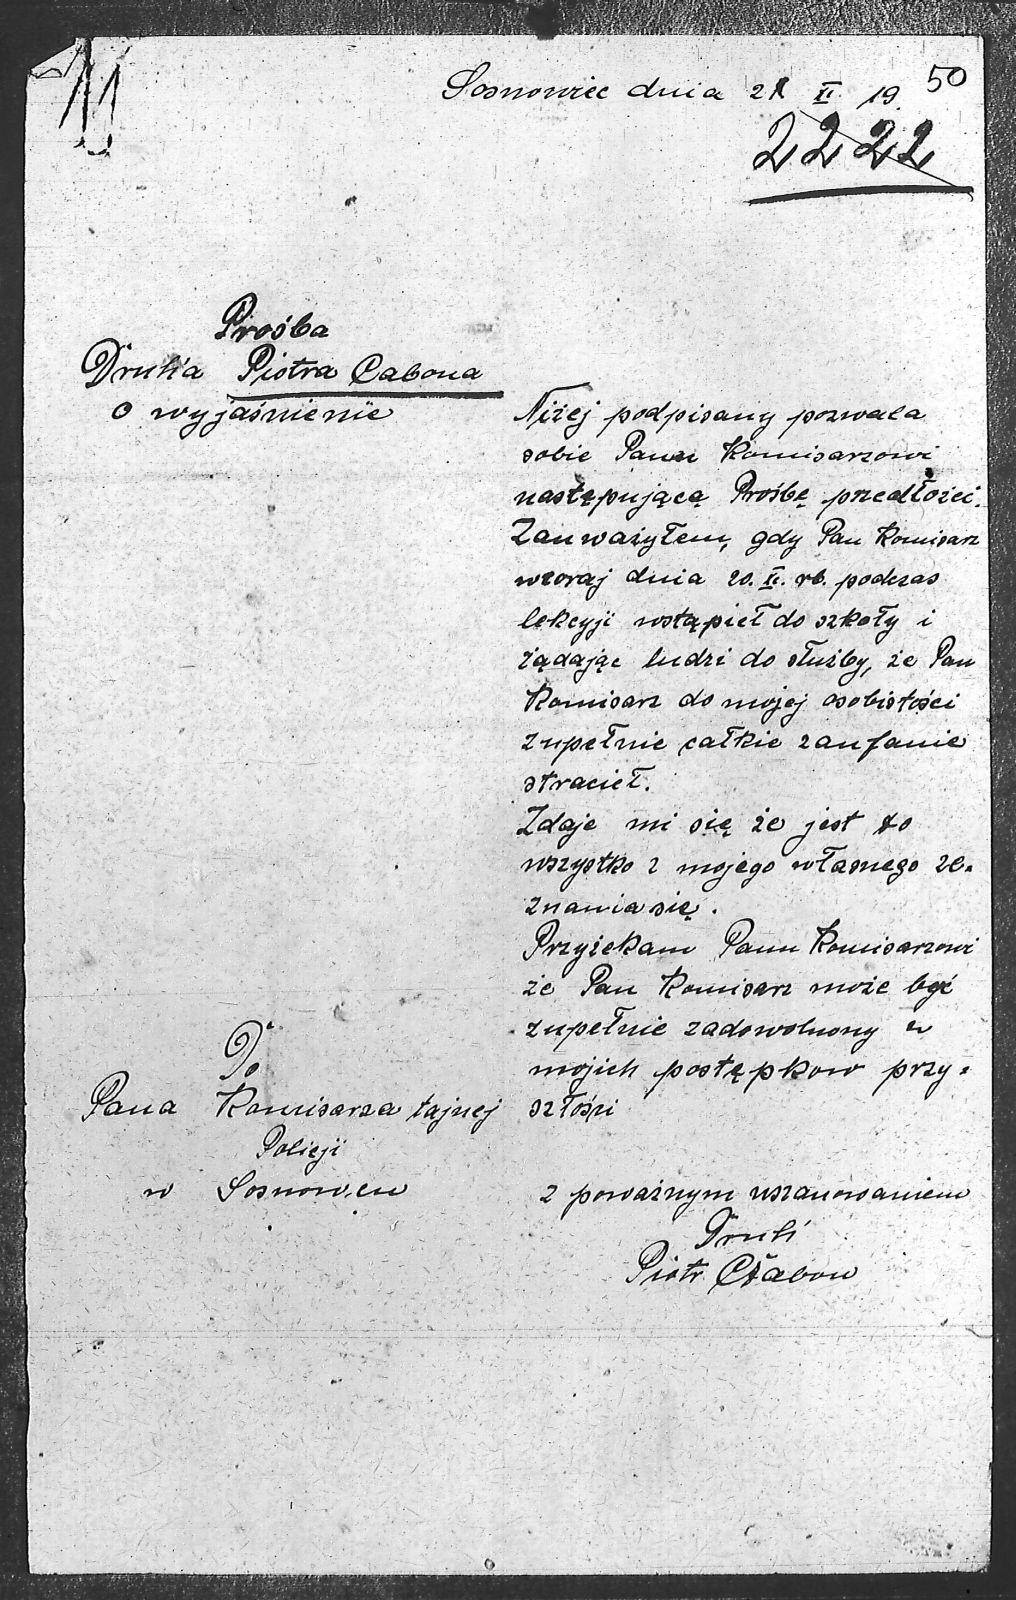 50
Sosnowiec dnia 21 II 19.
2222
Prośba
Druha Piotra Cabona
o wyjaśnienie
Niżej podpisany pozwala
sobie Panu Komisarzowi
następującą Prośbę przedłożeć.
Zauważyłem, gdy Pan Komisarz
wczoraj dnia 20. II. rb. podczas
lekcyji wstąpieł do szkoły i
żądając ludzi do służby, że Pan
Komisarz do mojej osobistości
zupełnie całkie zaufanie
stracieł.
Zdaje mi się że jest to
wszystko z mojego własnego ze-
znania się.
Przyżekam Panu Komisarzowi
że Pan Komisarz może być
zupełnie zadowolnony w
mojich postępkow przy-
szłości
Do
Pana Komisarza tajnej
Policji
w Sosnowcu
z poważnym uszanowaniem
Druh
Piotr Czabon